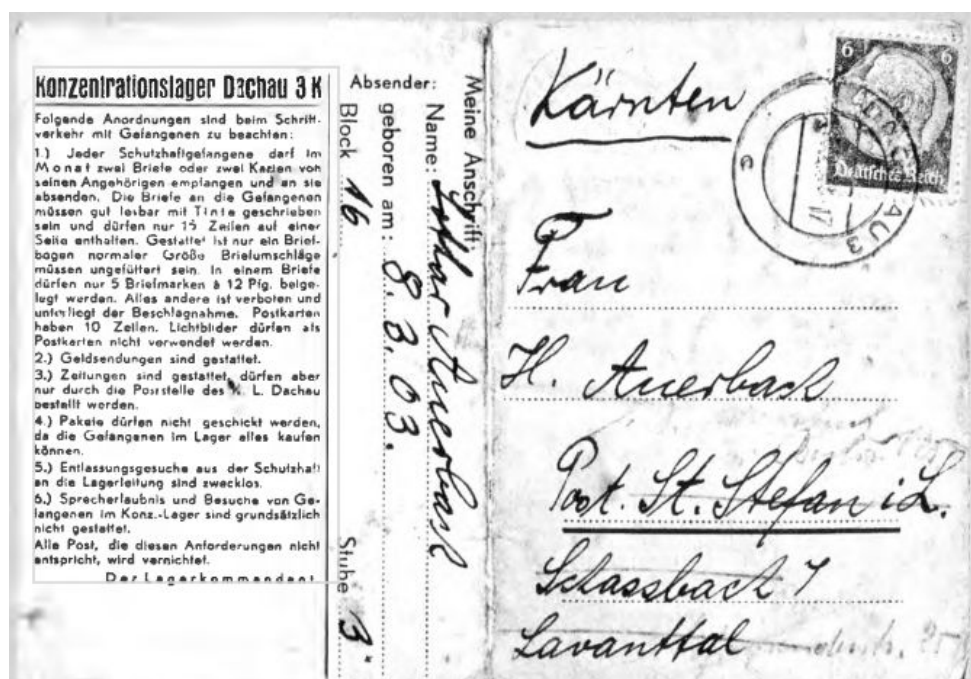 Konzentrationslager Dachau 3 K
Folgende Anordnungen sind beim Schrift-
verkehr mit Gefangenen zu beachten:
1.) Jeder Schutzhaftgefangene darf im
Monat zwei Briefe oder zwei Karten von
seinen Angehörigen empfangen und an sie
absenden. Die Briefe an die Gefangenen
müssen gut lesbar mit Tinte geschrieben
sein und dürfen nur 15 Zeilen auf einer
Seite enthalten. Gestattet ist nur ein Brief-
bogen normaler Größe Briefumschläge
müssen ungefüttert sein. In einem Briefe
dürfen nur 5 Briefmarken à 12 Pfg. beige-
legt werden. Alles andere ist verboten und
unterliegt der Beschlagnahme. Postkarten
haben 10 Zeilen. Lichtbilder dürfen als
Postkarten nicht verwendet werden.
2.) Geldsendungen sind gestattet.
3.) Zeitungen sind gestattet, dürfen aber
nur durch die Poststelle des K. L. Dachau
bestellt werden.
4.) Pakete dürfen nicht geschickt werden,
da die Gefangenen im Lager alles kaufen
können.
5.) Entlassungsgesuche aus der Schutzhaft
an die Lagerleitung sind zwecklos.
6.) Sprecherlaubnis und Besuche von Ge-
fangenen im Konz.-Lager sind grundsätzlich
nicht gestattet.
Alle Post, die diesen Anforderungen nicht
entspricht, wird vernichtet.
Der Lagerkommandant
Meine Anschrift:
Absender:
Name: Auerbach
geboren am: 8. 3. 03.
Block 16 Stube 3
Kärnten
Frau
H. Auerbach
Post. St. Stefan i. L.
Schassbach 7
Lavanttal
6 6
Deutsches Reich